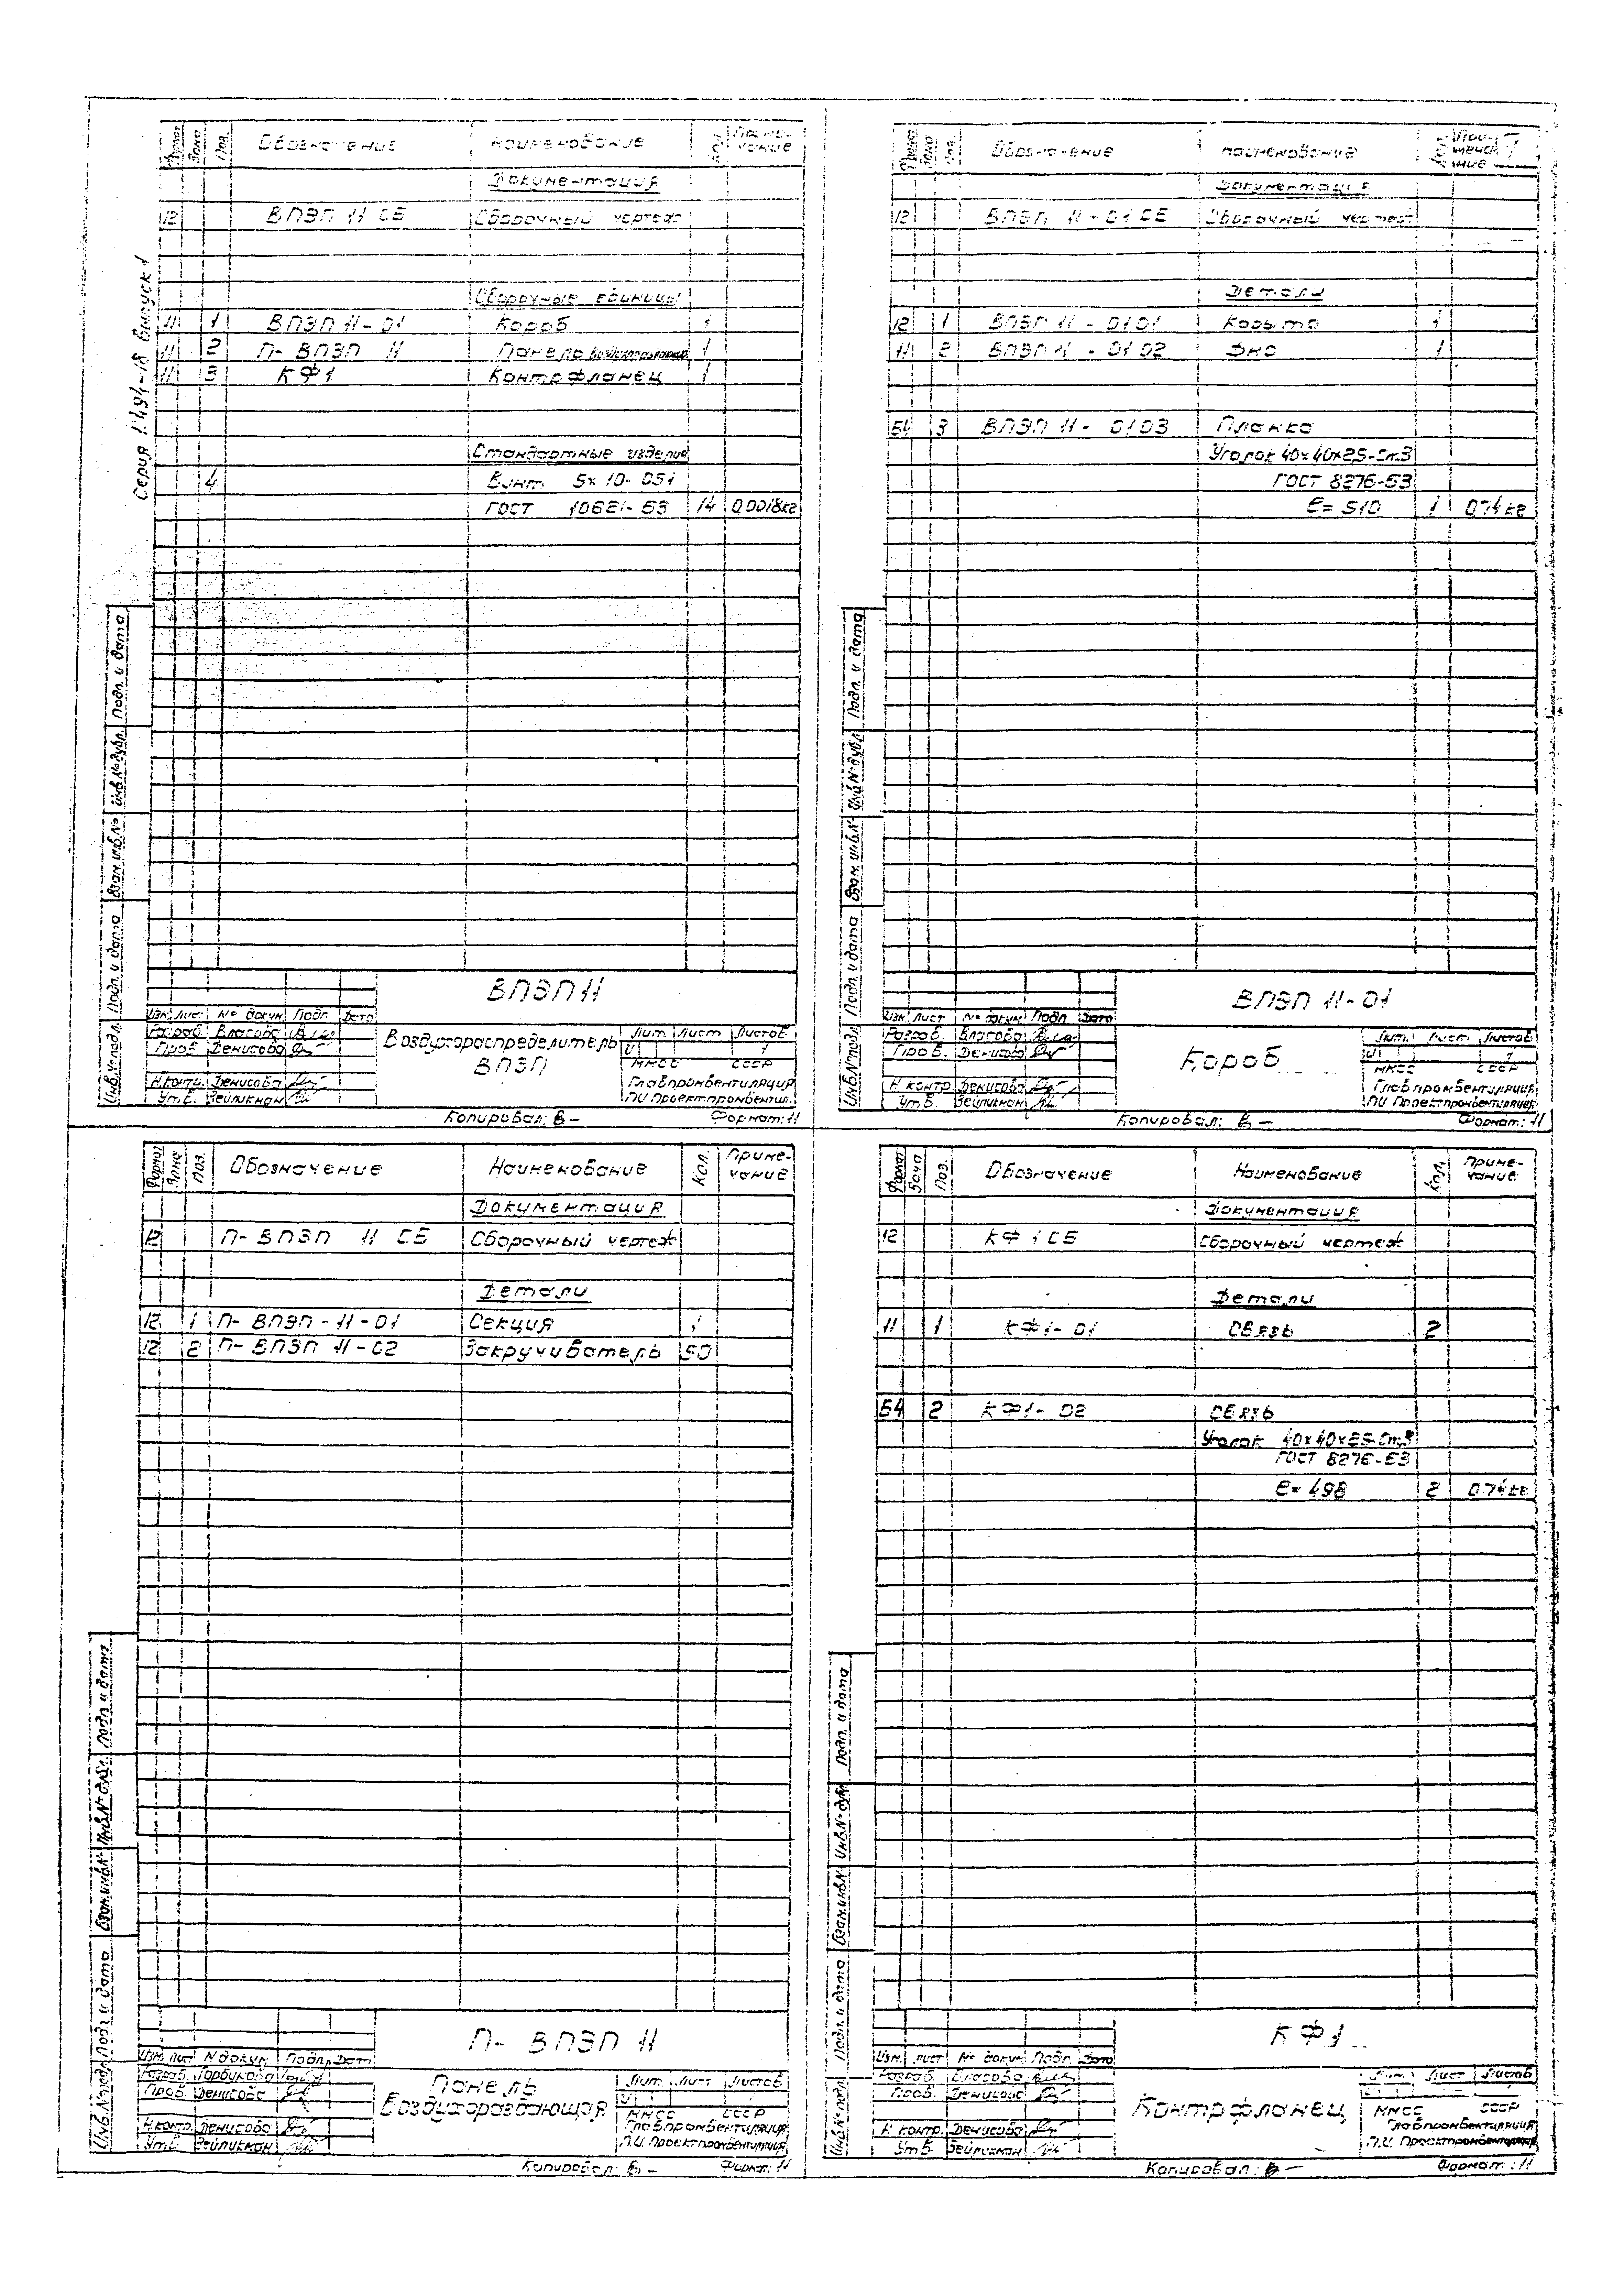 Серия 1.494-18 Выпуск 1
Формат Зона Поз. Обозначение Наименование Кол. Примечание
Документация
12 ВПЭП 11 СБ Сборочный чертеж
Сборочные единицы
11 1 ВПЭП 11-01 Короб 1
11 2 П-ВПЭП 11 Панель воздухораздающая 1
11 3 КФ1 Контрфланец 1
Стандартные изделия
4 Винт 5×10-051
ГОСТ 10621-63 14 0.0018кг
Подп. и дата
Инв.№ дубл.
Взам. инв.№
Подп. и дата
Инв.№ подл.
ВПЭП 11
Изм. Лист № докум. Подп. Дата
Разраб. Власова
Пров. Денисова
Н.контр. Денисова
Утв. Зейликман
Воздухораспределитель
ВПЭП
Лит. Лист Листов
И 1
ММСС СССР
Главпромвентиляция
ПИ Проектпромвентил.
Копировал: В- Формат: 11
Формат Зона Поз. Обозначение Наименование Кол. Примечание
Документация
12 ВПЭП 11-01 СБ Сборочный чертеж
Детали
12 1 ВПЭП 11-0101 Корыто 1
11 2 ВПЭП 11-0102 Дно 1
БЧ 3 ВПЭП 11-0103 Планка
Уголок 40×40×2.5-Ст.3
ГОСТ 8276-63
ℓ= 510 1 0.74кг
Подп. и дата
Инв.№ дубл.
Взам. инв.№
Подп. и дата
Инв.№ подл.
ВПЭП 11-01
Изм. Лист № докум. Подп. Дата
Разраб. Власова
Пров. Денисова
Н.контр. Денисова
Утв. Зейликман
Короб
Лит. Лист Листов
И 1
ММСС СССР
Главпромвентиляция
ПИ Проектпромвентиляция
Копировал: В- Формат: 11
Формат Зона Поз. Обозначение Наименование Кол. Примечание
Документация
12 П-ВПЭП 11 СБ Сборочный чертеж
Детали
12 1 П-ВПЭП-11-01 Секция 1
12 2 П-ВПЭП 11-02 Закручиватель 50
Подп. и дата
Инв.№ дубл.
Взам. инв.№
Подп. и дата
Инв.№ подл.
П-ВПЭП 11
Изм. Лист № докум. Подп. Дата
Разраб. Горбукова
Пров. Денисова
Н.контр. Денисова
Утв. Зейликман
Панель
Воздухораздающая
Лит. Лист Листов
И
ММСС СССР
Главпромвентиляция
П.И. Проектпромвентиляция
Копировал: В- Формат: 11
Формат Зона Поз. Обозначение Наименование Кол. Примечание
Документация
12 КФ 1 СБ Сборочный чертеж
Детали
11 1 КФ1-01 Связь 2
БЧ 2 КФ1-02 Связь
Уголок 40×40×2.5-Ст.3
ГОСТ 8276-63
ℓ= 498 2 0.74кг
Подп. и дата
Инв.№ дубл.
Взам. инв.№
Подп. и дата
Инв.№ подл.
КФ1
Изм. Лист № докум. Подп. Дата
Разраб. Власова
Пров. Денисова
Н.контр. Денисова
Утв. Зейликман
Контрфланец
Лит. Лист Листов
ММСС СССР
Главпромвентиляция
П.И. Проектпромвентиляция
Копировал: В- Формат: 11